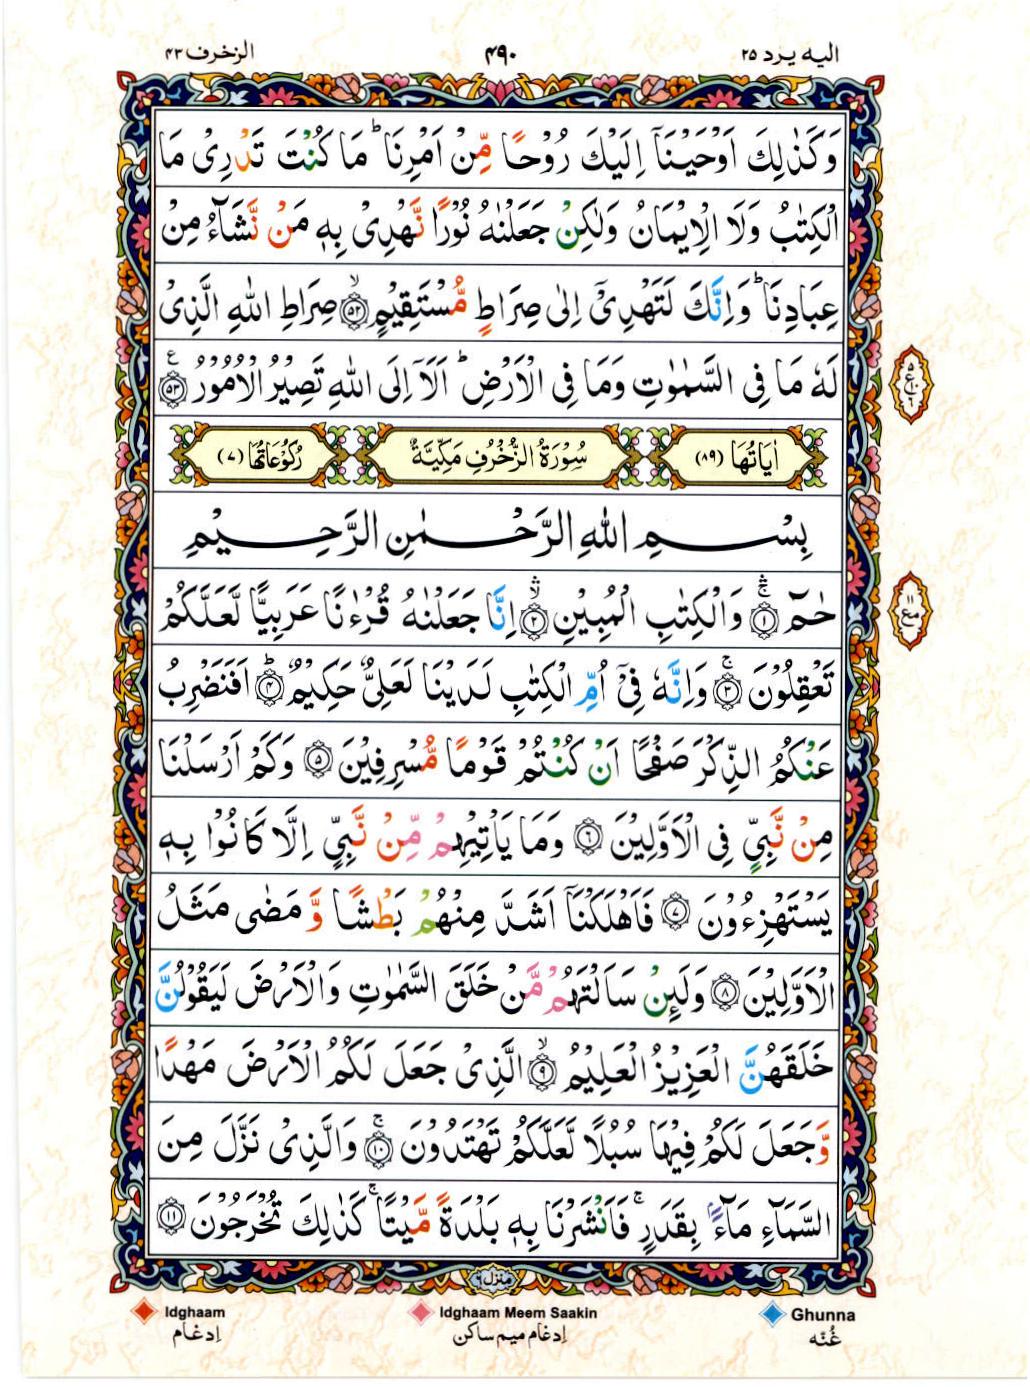 الیه یرد ۲۵
۴۹۰
الزخرف ۴۳
وَكَذٰلِكَ اَوْحَيْنَاۤ اِلَيْكَ رُوْحًا مِّنْ اَمْرِنَا ؕ مَا كُنْتَ تَدْرِىْ مَا
الْكِتٰبُ وَلَا الْاِيْمَانُ وَلٰكِنْ جَعَلْنٰهُ نُوْرًا نَّهْدِىْ بِهٖ مَنْ نَّشَآءُ مِنْ
عِبَادِنَا ؕ وَاِنَّكَ لَتَهْدِىْۤ اِلٰى صِرَاطٍ مُّسْتَقِيْمٍ ۙ‏﴿۵۲﴾ صِرَاطِ اللّٰهِ الَّذِىْ
لَهٗ مَا فِى السَّمٰوٰتِ وَمَا فِى الْاَرْضِ ؕ اَلَاۤ اِلَى اللّٰهِ تَصِيْرُ الْاُمُوْرُ ﴿۵۳﴾ ع
اٰيَاتُهَا (۸۹) سُوْرَةُ الزُّخْرُفِ مَكِّيَّةٌ رُكُوْعَاتُهَا (۷)
بِسْمِ اللّٰهِ الرَّحْمٰنِ الرَّحِيْمِ
حٰمٓ ۚۛ ﴿۱﴾ وَالْكِتٰبِ الْمُبِيْنِ ۙۛ ﴿۲﴾ اِنَّا جَعَلْنٰهُ قُرْءٰنًا عَرَبِيًّا لَّعَلَّكُمْ
تَعْقِلُوْنَ ۚ ﴿۳﴾ وَاِنَّهٗ فِىْۤ اُمِّ الْكِتٰبِ لَدَيْنَا لَعَلِىٌّ حَكِيْمٌ ؕ ﴿۴﴾ اَفَنَضْرِبُ
عَنْكُمُ الذِّكْرَ صَفْحًا اَنْ كُنْتُمْ قَوْمًا مُّسْرِفِيْنَ ﴿۵﴾ وَكَمْ اَرْسَلْنَا
مِنْ نَّبِىٍّ فِى الْاَوَّلِيْنَ ﴿۶﴾ وَمَا يَاْتِيْهِمْ مِّنْ نَّبِىٍّ اِلَّا كَانُوْا بِهٖ
يَسْتَهْزِءُوْنَ ﴿۷﴾ فَاَهْلَكْنَاۤ اَشَدَّ مِنْهُمْ بَطْشًا وَّ مَضٰى مَثَلُ
الْاَوَّلِيْنَ ﴿۸﴾ وَلَئِنْ سَاَلْتَهُمْ مَّنْ خَلَقَ السَّمٰوٰتِ وَالْاَرْضَ لَيَقُوْلُنَّ
خَلَقَهُنَّ الْعَزِيْزُ الْعَلِيْمُ ۙ ﴿۹﴾ الَّذِىْ جَعَلَ لَكُمُ الْاَرْضَ مَهْدًا
وَّجَعَلَ لَكُمْ فِيْهَا سُبُلًا لَّعَلَّكُمْ تَهْتَدُوْنَ ۚ ﴿۱۰﴾ وَالَّذِىْ نَزَّلَ مِنَ
السَّمَآءِ مَآءًۢ بِقَدَرٍ ۚ فَاَنْشَرْنَا بِهٖ بَلْدَةً مَّيْتًا ۚ كَذٰلِكَ تُخْرَجُوْنَ ﴿۱۱﴾
منزل ۶
Idghaam
Idghaam Meem Saakin
Ghunna
اِدغام
اِدغام میم ساکن
غُنّه